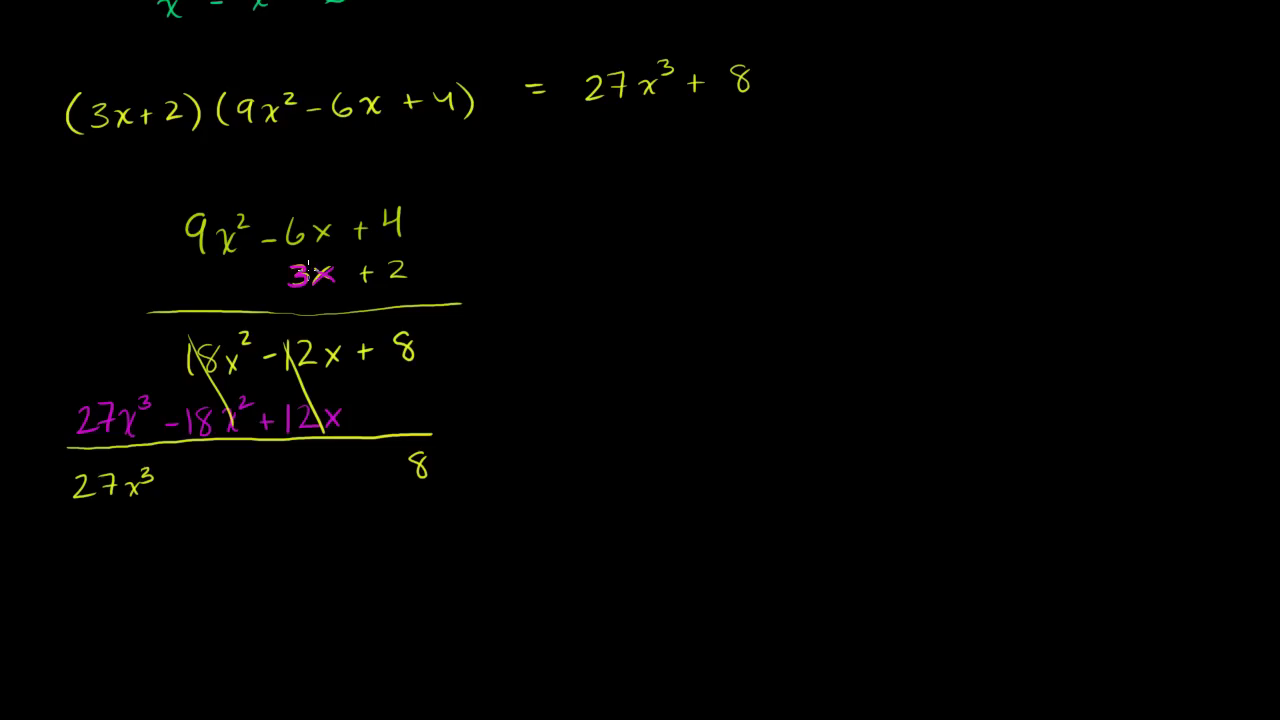 (3x+2)(9x² - 6x + 4) = 27x³ + 8
9x² - 6x + 4
3x + 2
18x² - 12x + 8
27x³ - 18x² + 12x
27x³ 8